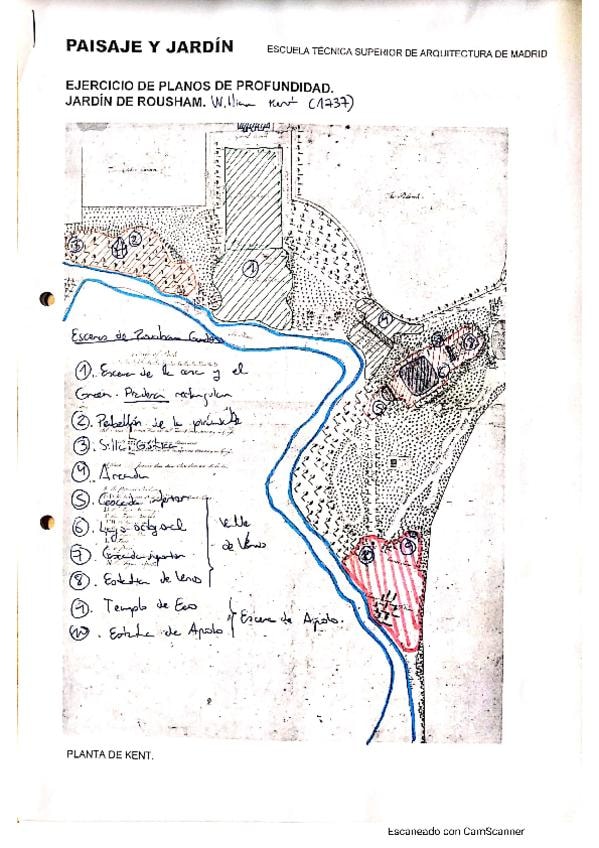 PAISAJE Y JARDÍN
ESCUELA TÉCNICA SUPERIOR DE ARQUITECTURA DE MADRID
EJERCICIO DE PLANOS DE PROFUNDIDAD.
JARDÍN DE ROUSHAM. William Kent (1737)
3 2
1
4
Escenas de Rousham
1. Escena de la y el
Green. Pradera rectangular
2. Pabellón de la pirámide
3. Silla Gótica
4. Arcada
5. Cascada inferior
6. Lago octogonal
7. Cascada superior
8. Estatua de Venus
Valle
de Venus
9. Templo de Eco
10. Estatua de Apolo
Escena de Apolo.
10 9
PLANTA DE KENT.
Escaneado con CamScanner